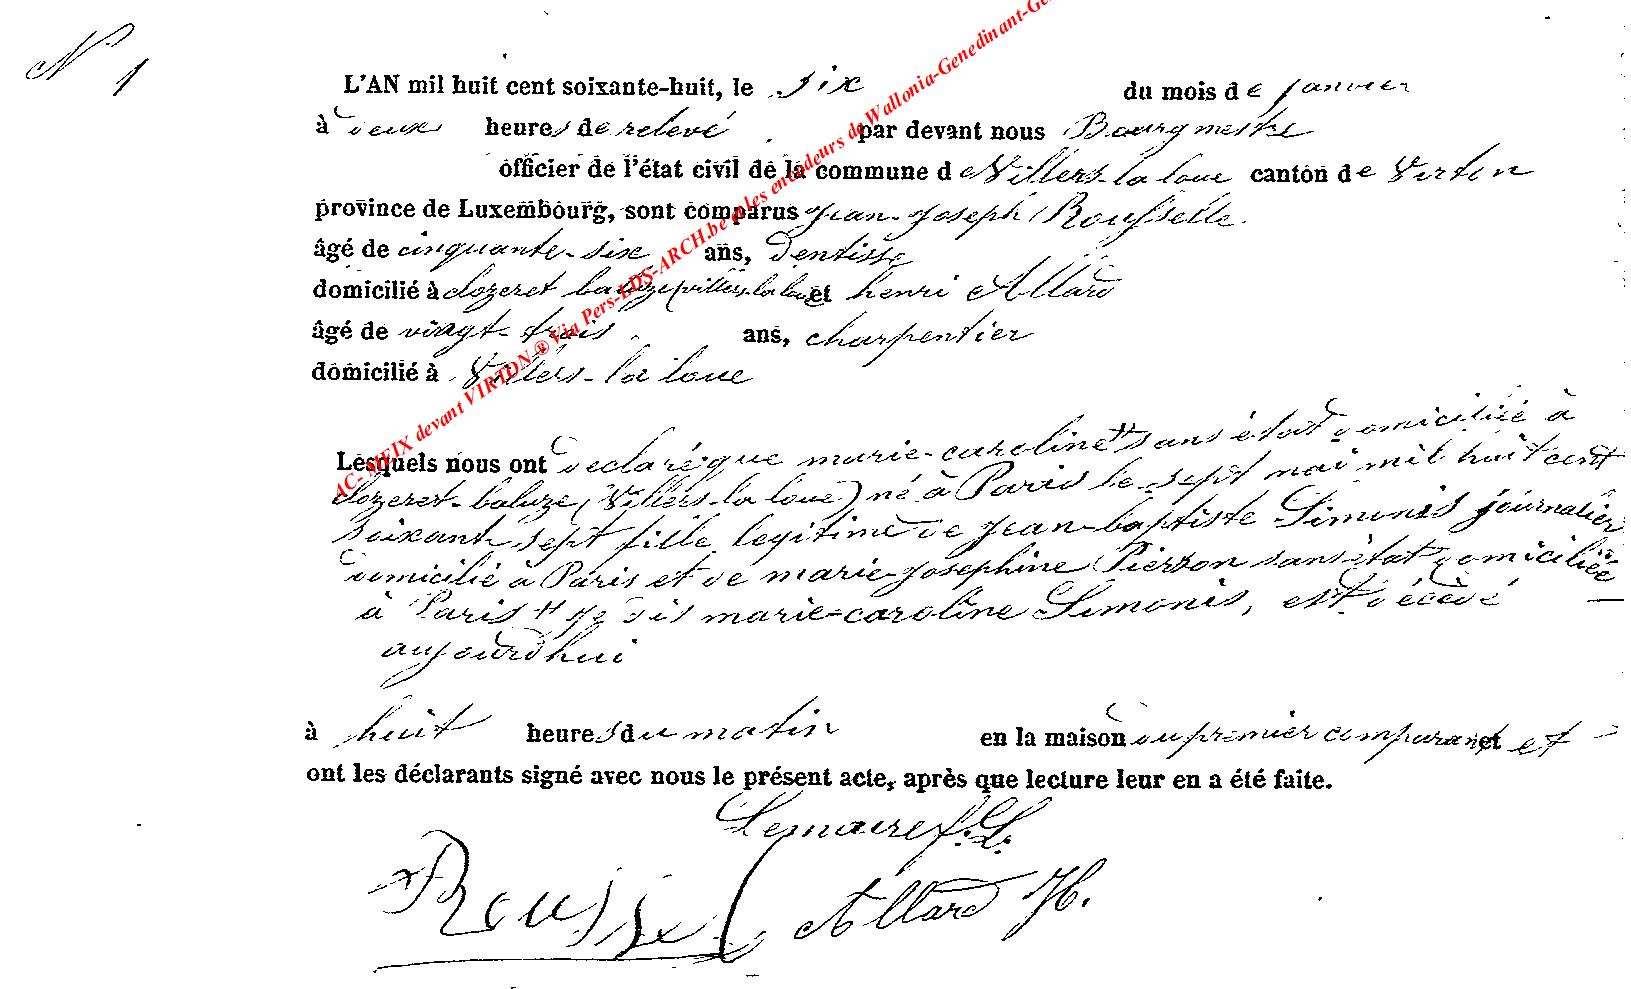 N 1
L'AN mil huit cent soixante-huit, le six du mois de janvier
à deux heures de relevé par devant nous Bourgmestre
officier de l'état civil de la commune de Villers-la loue canton de Virton
province de Luxembourg, sont comparus jean-joseph Rousselle
âgé de cinquante-six ans, Dentisse
domicilié à clozeret baluze (villers la loue et henri Allard
âgé de vingt-trois ans, charpentier
domicilié à Villers-la loue
Lesquels nous ont declaré que marie-caroline # sans état domiciliée à
clozeret-baluze (Villers-la loue) né à Paris le sept mai mil huit cent
soixant-sept fille legitime de jean-baptiste Simonis journalier
domicilié à Paris et de marie-josephine Pierson sans état domiciliée
à Paris # marie-caroline Simonis, est décédé
aujourdhui
à huit heures du matin en la maison du premier comparant et et
ont les déclarants signé avec nous le présent acte, après que lecture leur en a été faite.
Lemaire f. L.
Allard H.
AC-MEIX devant VIRTON ® Via Pers-LDS-ARCH.be et les encodeurs de Wallonia-Genedinant-Ge